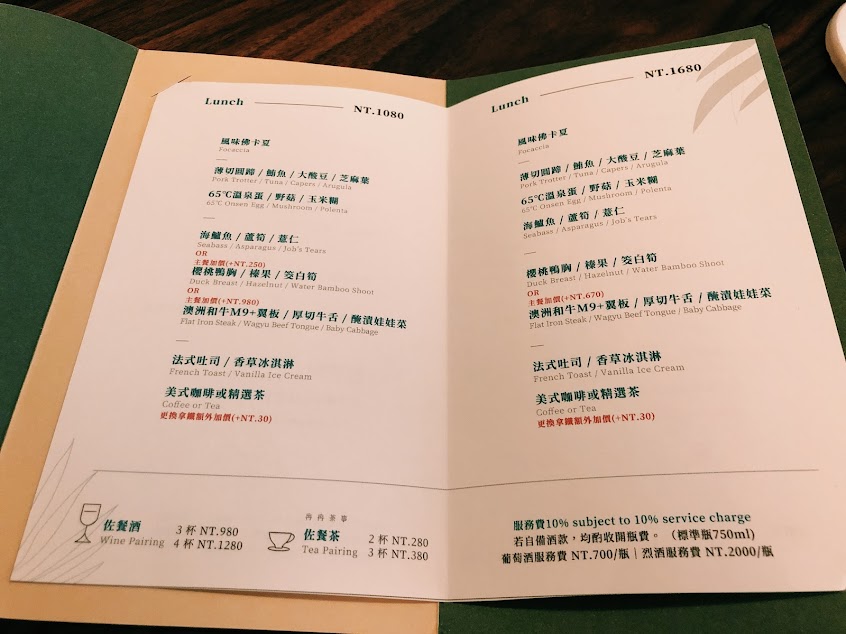 Lunch
NT.1080
風味佛卡夏
Focaccia
薄切圓蹄 / 鮪魚 / 大酸豆 / 芝麻葉
Pork Trotter / Tuna / Capers / Arugula
65℃溫泉蛋 / 野菇 / 玉米糊
65℃ Onsen Egg / Mushroom / Polenta
海鱸魚 / 蘆筍 / 薏仁
Seabass / Asparagus / Job's Tears
OR
主餐加價(+NT.250)
櫻桃鴨胸 / 榛果 / 筊白筍
Duck Breast / Hazelnut / Water Bamboo Shoot
OR
主餐加價(+NT.980)
澳洲和牛M9+翼板 / 厚切牛舌 / 醃漬娃娃菜
Flat Iron Steak / Wagyu Beef Tongue / Baby Cabbage
法式吐司 / 香草冰淇淋
French Toast / Vanilla Ice Cream
美式咖啡或精選茶
Coffee or Tea
更換拿鐵額外加價(+NT.30)
佐餐酒
Wine Pairing
3 杯 NT.980
4 杯 NT.1280
冉冉茶事
佐餐茶
Tea Pairing
2 杯 NT.280
3 杯 NT.380
Lunch
NT.1680
風味佛卡夏
Focaccia
薄切圓蹄 / 鮪魚 / 大酸豆 / 芝麻葉
Pork Trotter / Tuna / Capers / Arugula
65℃溫泉蛋 / 野菇 / 玉米糊
65℃ Onsen Egg / Mushroom / Polenta
海鱸魚 / 蘆筍 / 薏仁
Seabass / Asparagus / Job's Tears
櫻桃鴨胸 / 榛果 / 筊白筍
Duck Breast / Hazelnut / Water Bamboo Shoot
OR
主餐加價(+NT.670)
澳洲和牛M9+翼板 / 厚切牛舌 / 醃漬娃娃菜
Flat Iron Steak / Wagyu Beef Tongue / Baby Cabbage
法式吐司 / 香草冰淇淋
French Toast / Vanilla Ice Cream
美式咖啡或精選茶
Coffee or Tea
更換拿鐵額外加價(+NT.30)
服務費10% subject to 10% service charge
若自備酒款，均酌收開瓶費。（標準瓶750ml）
葡萄酒服務費 NT.700/瓶 | 烈酒服務費 NT.2000/瓶